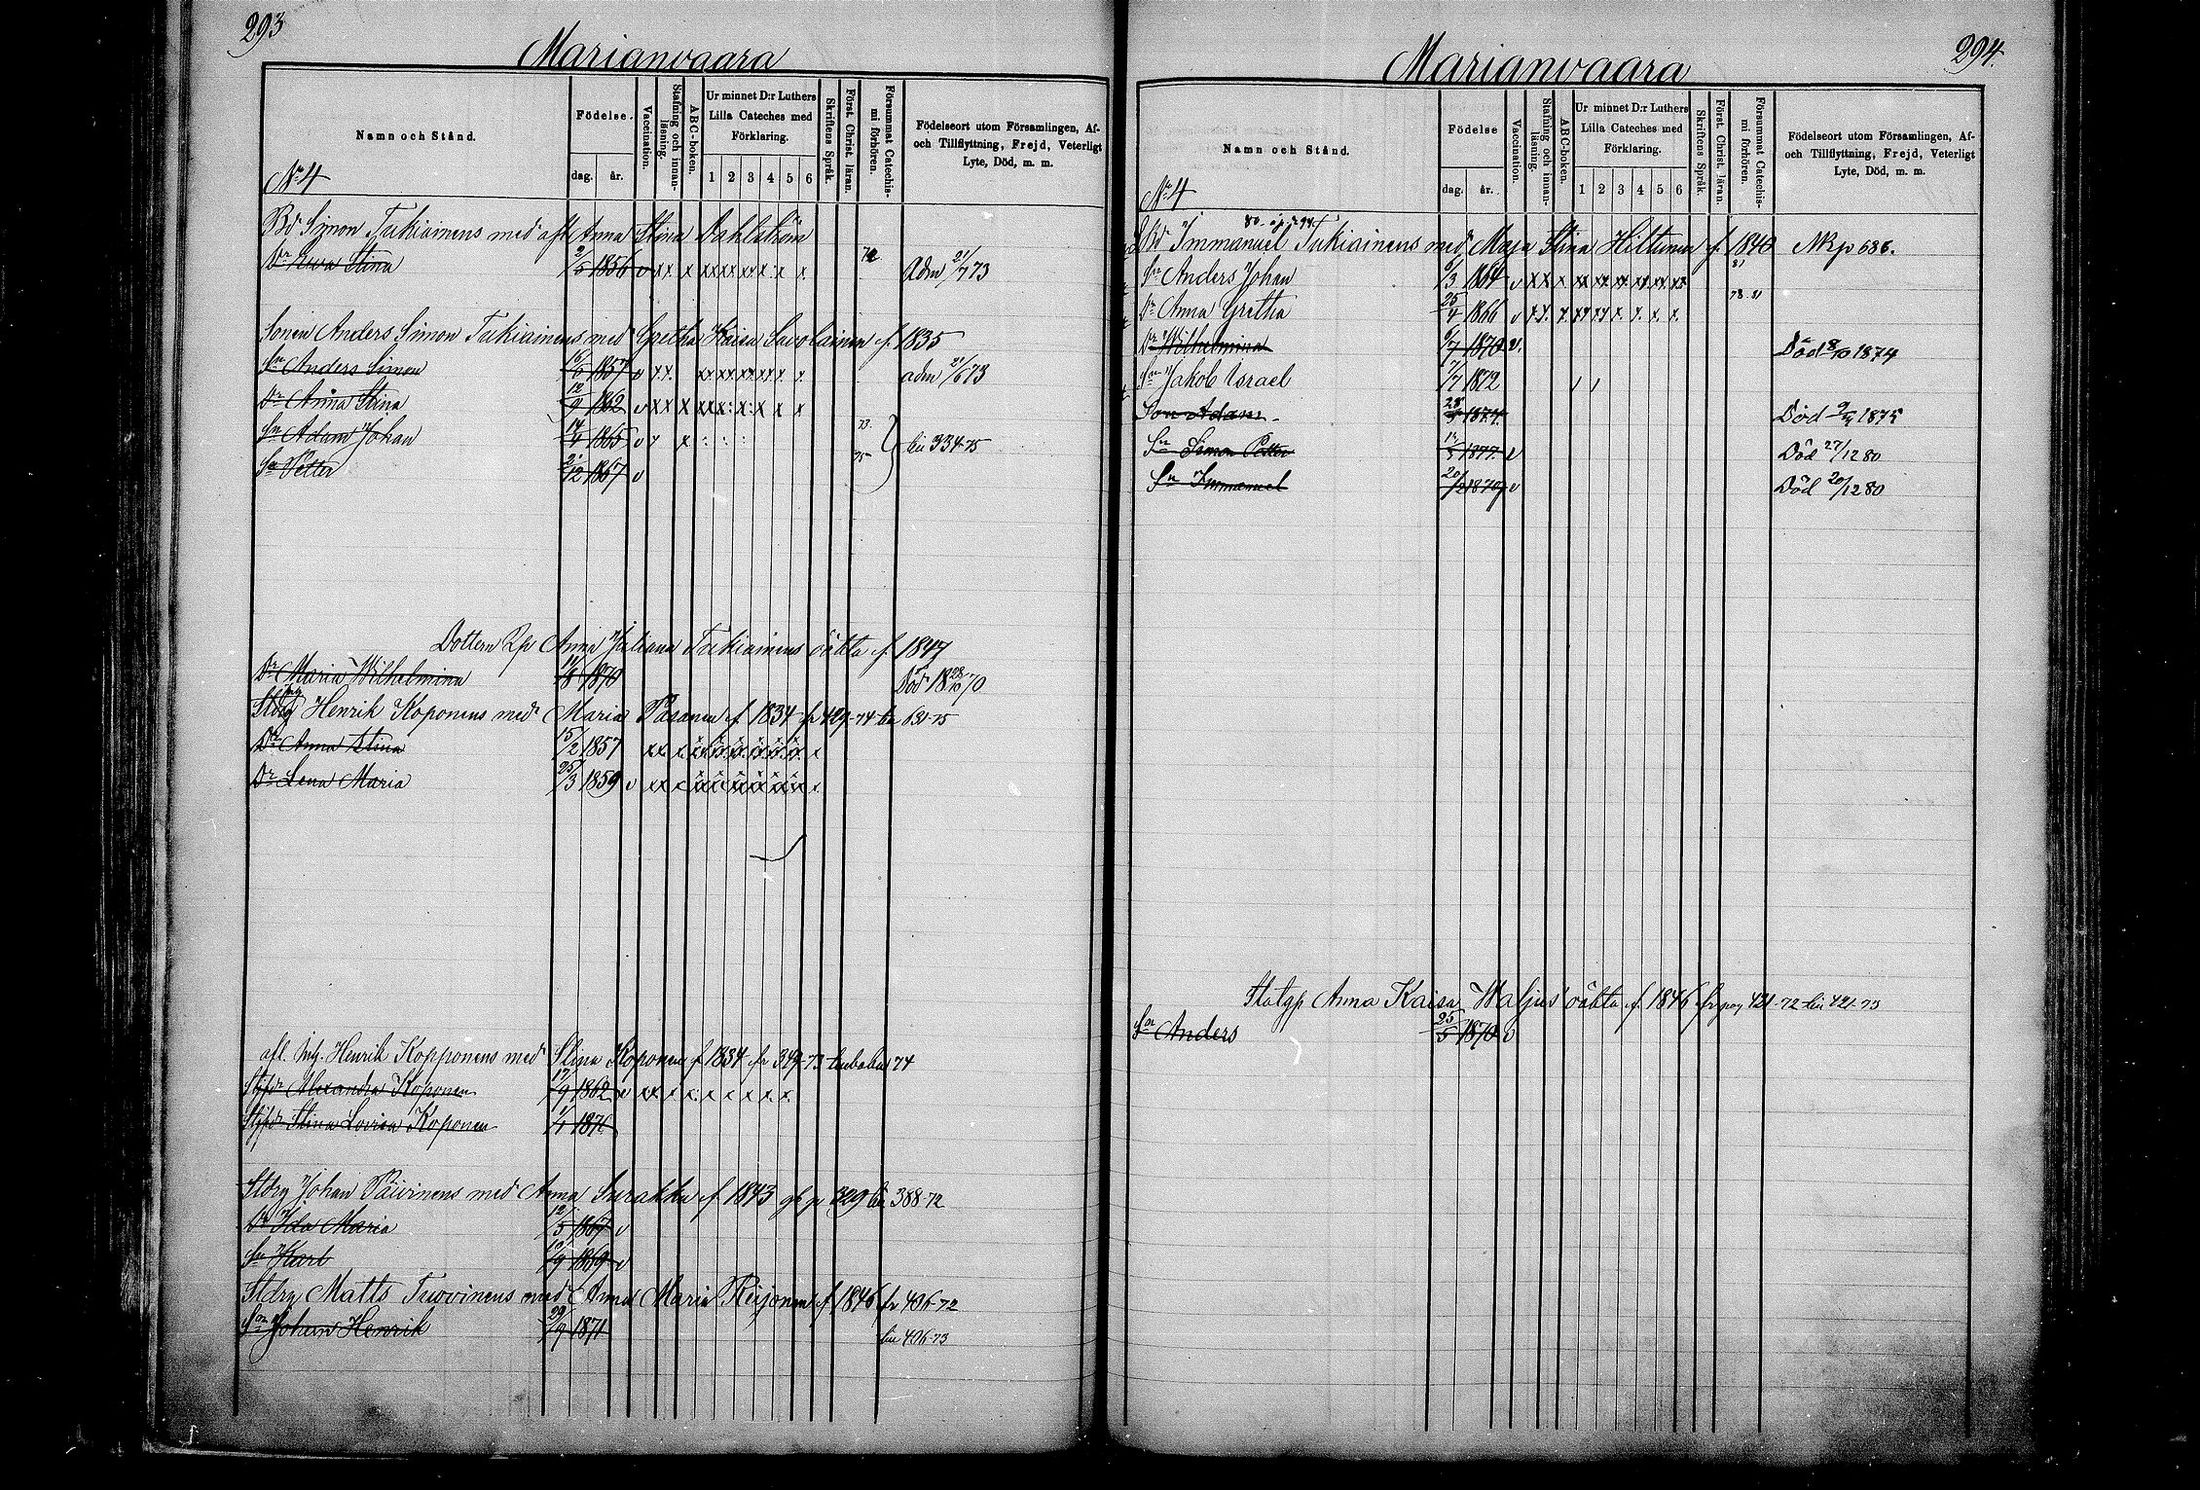 293
Marianvaara
Namn och Stånd.
Födelse.
dag. år.
Vaccination.
Stafning och innan-läsning.
ABC-boken.
Ur minnet D:r Luthers
Lilla Cateches med
Förklaring.
1 2 3 4 5 6
Skriftens Språk.
Först. Christ. läran.
Försummat Catechis-mi förhören.
Födelseort utom Församlingen, Af-
och Tillflyttning, Frejd, Veterligt
Lyte, Död, m. m.
No 4
Bd Simon Tukiainens med afl Anna Stina Dahlström
Dr Ewa Stina 2/5 1856 v xx x xx xx xx x x x 72 Adm 21/7 73
Sonen Anders Simon Tukiainens med Gretha Kaisa Savolainen f. 1835
Sn Anders Simon 15/6 1857 v xx. xx xx xx xx x x adm 21/6 73
Dr Anna Stina 12/9 1862 v xx x xx x: x: x x x
Sn Adam Johan 14/4 1865 v x x : : : 73
Sn Petter 21/12 1867 v 75 bu 334-75
Dottern Anna Juliana Tukiainens oäkta f. 1847
Dr Maria Wilhelmina 11/8 1870 Död 18 28/10 70
Henrik Koponens med Maria Pasanen f 1834 fr 427-74 bu 631-75
Dr Anna Stina 15/2 1857
Dr Lena Maria 25/3 1859 v
afl. Inh. Henrik Kopponens med Stina Koponen f 1834 fr 347-73 74
Styfdr Alexandra Koponen 17/9 1862 v xx x x: x x x x x
Styfdr Stina Lovisa Koponen 1/1 1871
Stdrg Johan Päivinens med Anna Surakka f. 1843 329 bu 388-72
Dr Ida Maria 12/5 1867 v
Sn Karl 10/9 1869 v
Stdrg Matts Tuovinens med Anna Maria Reijonen f 1846 fr 406-72
Sn Johan Henrik 29/9 1871 bu 406-73
294.
Marianvaara
Namn och Stånd.
Födelse
dag. år.
Vaccination.
Stafning och innan-läsning.
ABC-boken.
Ur minnet D:r Luthers
Lilla Cateches med
Förklaring.
1 2 3 4 5 6
Skriftens Språk.
Först. Christ. läran.
Försummat Catechis-mi förhören.
Födelseort utom Församlingen, Af-
och Tillflyttning, Frejd, Veterligt
Lyte, Död, m. m.
No 4
Bd Immanuel Tukiainens med Maja Stina Hiltunen f. 1840 NKp 636.
Sn Anders Johan 6/3 1864 v xx x xx xx xx xx xx xx 81
Dr Anna Gretha 25/4 1866 v x x. x xx xx x. x. x. x. 78-81
Dr Wilhelmina 6/7 1870 v. Död 8/10 1874
Sn Jakob Israel 17/7 1872
Son Adam 1874 Död 9/4 1875
Sn Simon Petter 1877 v Död 27/12 80
Sn Immanuel 20/2 1879 v Död 20/12 80
Anna Kaisa Waljus oäkta f. 1846 421-72 bu 421-73
Sn Anders 25/5 1870 v